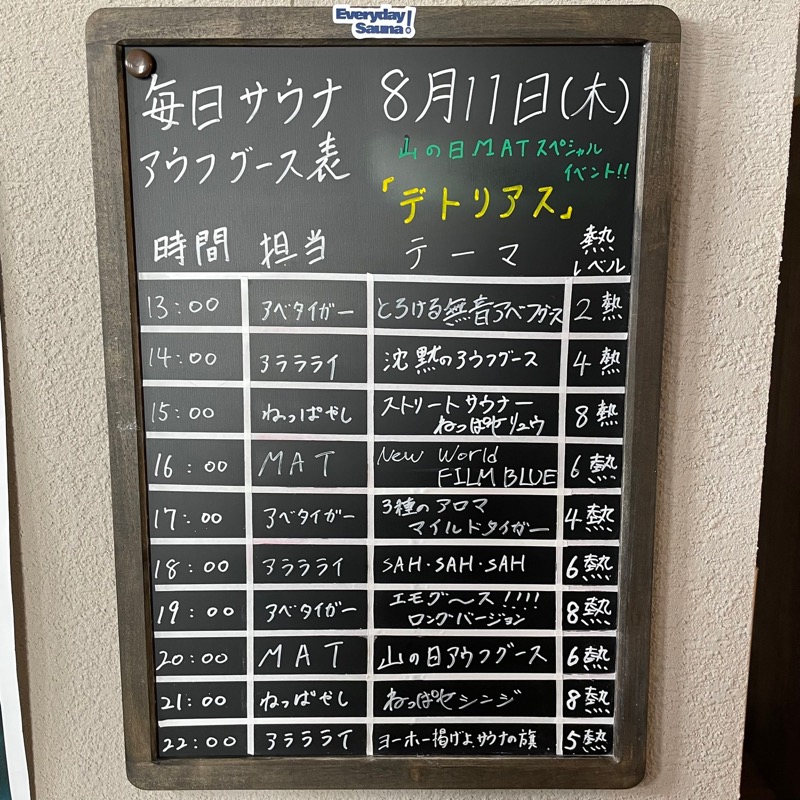 Everyday
Sauna!
毎日サウナ 8月11日(木)
アウフグース表 山の日MATスペシャル
イベント!!
「デトリアス」
時間 担当 テーマ 熱レベル
13:00 アベタイガー とろける無音アベフグース 2熱
14:00 アララライ 沈黙のアウフグース 4熱
15:00 ねっぱやし ストリートサウナー
ねっぱセリュウ 8熱
16:00 MAT New World
FILM BLUE 6熱
17:00 アベタイガー 3種のアロマ
マイルドタイガー 4熱
18:00 アララライ SAH・SAH・SAH 6熱
19:00 アベタイガー エモグ〜ス!!!!
ロングバージョン 8熱
20:00 MAT 山の日アウフグース 6熱
21:00 ねっぱやし ねっぱセシンジ 8熱
22:00 アララライ ヨーホー掲げよサウナの旗 5熱